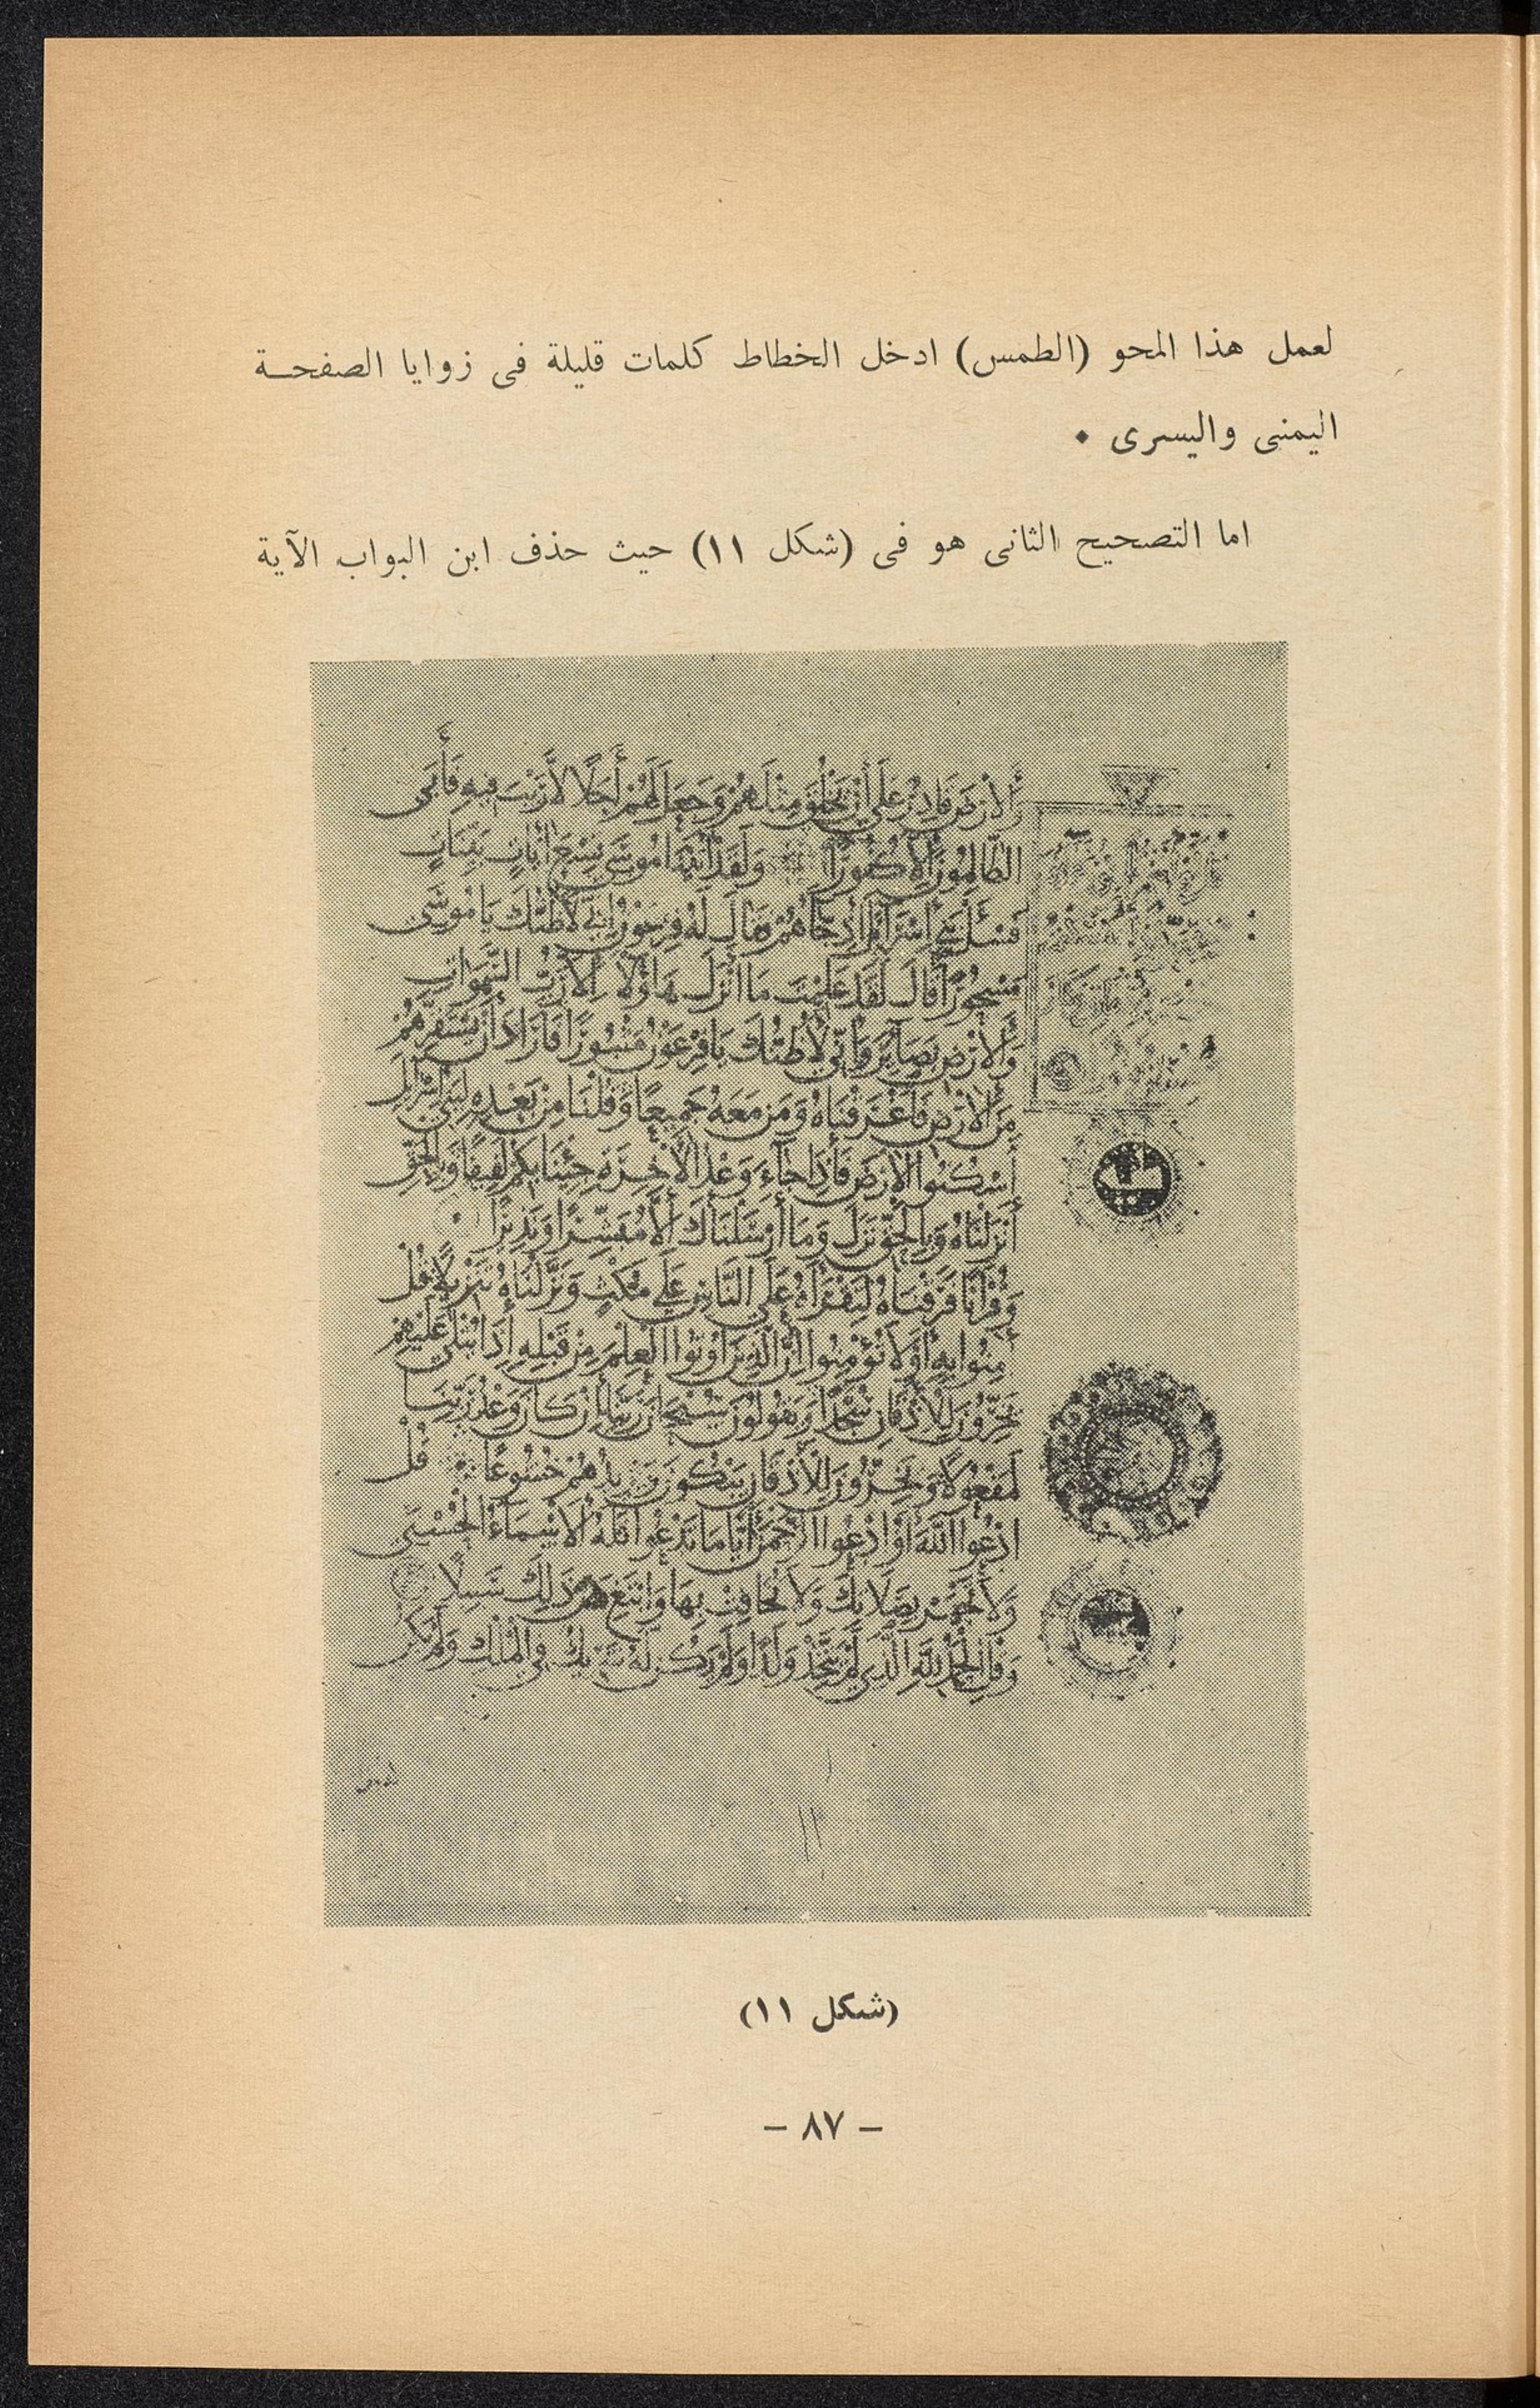 لعمل هذا المحو (الطمس) ادخل الخطاط كلمات قليلة فى زوايا الصفحــة
اليمنى واليسرى •
اما التصحيح الثانى هو فى (شكل ١١) حيث حذف ابن البواب الآية
وَالأَرْضَ قَادِرٌ عَلَى أَنْ يَخْلُقَ مِثْلَهُمْ وَجَعَلَ لَهُمْ أَجَلًا لَا رَيْبَ فِيهِ فَأَبَى
الظَّالِمُونَ إِلَّا كُفُورًا وَلَقَدْ آتَيْنَا مُوسَى تِسْعَ آيَاتٍ بَيِّنَاتٍ
فَسْئَلْ بَنِي إِسْرَائِيلَ إِذْ جَاءَهُمْ فَقَالَ لَهُ فِرْعَوْنُ إِنِّي لَأَظُنُّكَ يَا مُوسَى
مَسْحُورًا قَالَ لَقَدْ عَلِمْتَ مَا أَنْزَلَ هَاؤُلَاءِ إِلَّا رَبُّ السَّمَوَاتِ
وَالأَرْضِ بَصَائِرَ وَإِنِّي لَأَظُنُّكَ يَا فِرْعَوْنُ مَثْبُورًا فَأَرَادَ أَنْ يَسْتَفِزَّهُمْ
مِنَ الأَرْضِ فَأَغْرَقْنَاهُ وَمَنْ مَعَهُ جَمِيعًا وَقُلْنَا مِنْ بَعْدِهِ لِبَنِي إِسْرَائِيلَ
أُسْكُنُوا الأَرْضَ فَإِذَا جَاءَ وَعْدُ الآخِرَةِ جِئْنَا بِكُمْ لَفِيفًا وَبِالْحَقِّ
أَنْزَلْنَاهُ وَبِالْحَقِّ نَزَلَ وَمَا أَرْسَلْنَاكَ إِلَّا مُبَشِّرًا وَنَذِيرًا
وَقُرْآنًا فَرَقْنَاهُ لِتَقْرَأَهُ عَلَى النَّاسِ عَلَى مُكْثٍ وَنَزَّلْنَاهُ تَنْزِيلًا قُلْ
آمِنُوا بِهِ أَوْ لَا تُؤْمِنُوا إِنَّ الَّذِينَ أُوتُوا الْعِلْمَ مِنْ قَبْلِهِ إِذَا يُتْلَى عَلَيْهِمْ
يَخِرُّونَ لِلأَذْقَانِ سُجَّدًا وَيَقُولُونَ سُبْحَانَ رَبِّنَا إِنْ كَانَ وَعْدُ رَبِّنَا
لَمَفْعُولًا وَيَخِرُّونَ لِلأَذْقَانِ يَبْكُونَ وَيَزِيدُهُمْ خُشُوعًا قُلْ
ادْعُوا اللَّهَ أَوِ ادْعُوا الرَّحْمَنَ أَيًّا مَا تَدْعُوا فَلَهُ الأَسْمَاءُ الْحُسْنَى
وَلَا تَجْهَرْ بِصَلَاتِكَ وَلَا تُخَافِتْ بِهَا وَابْتَغِ بَيْنَ ذَلِكَ سَبِيلًا
وَقُلِ الْحَمْدُ لِلَّهِ الَّذِي لَمْ يَتَّخِذْ وَلَدًا وَلَمْ يَكُنْ لَهُ شَرِيكٌ فِي الْمُلْكِ وَلَمْ يَكُنْ
(شكل ١١)
– ٨٧ –